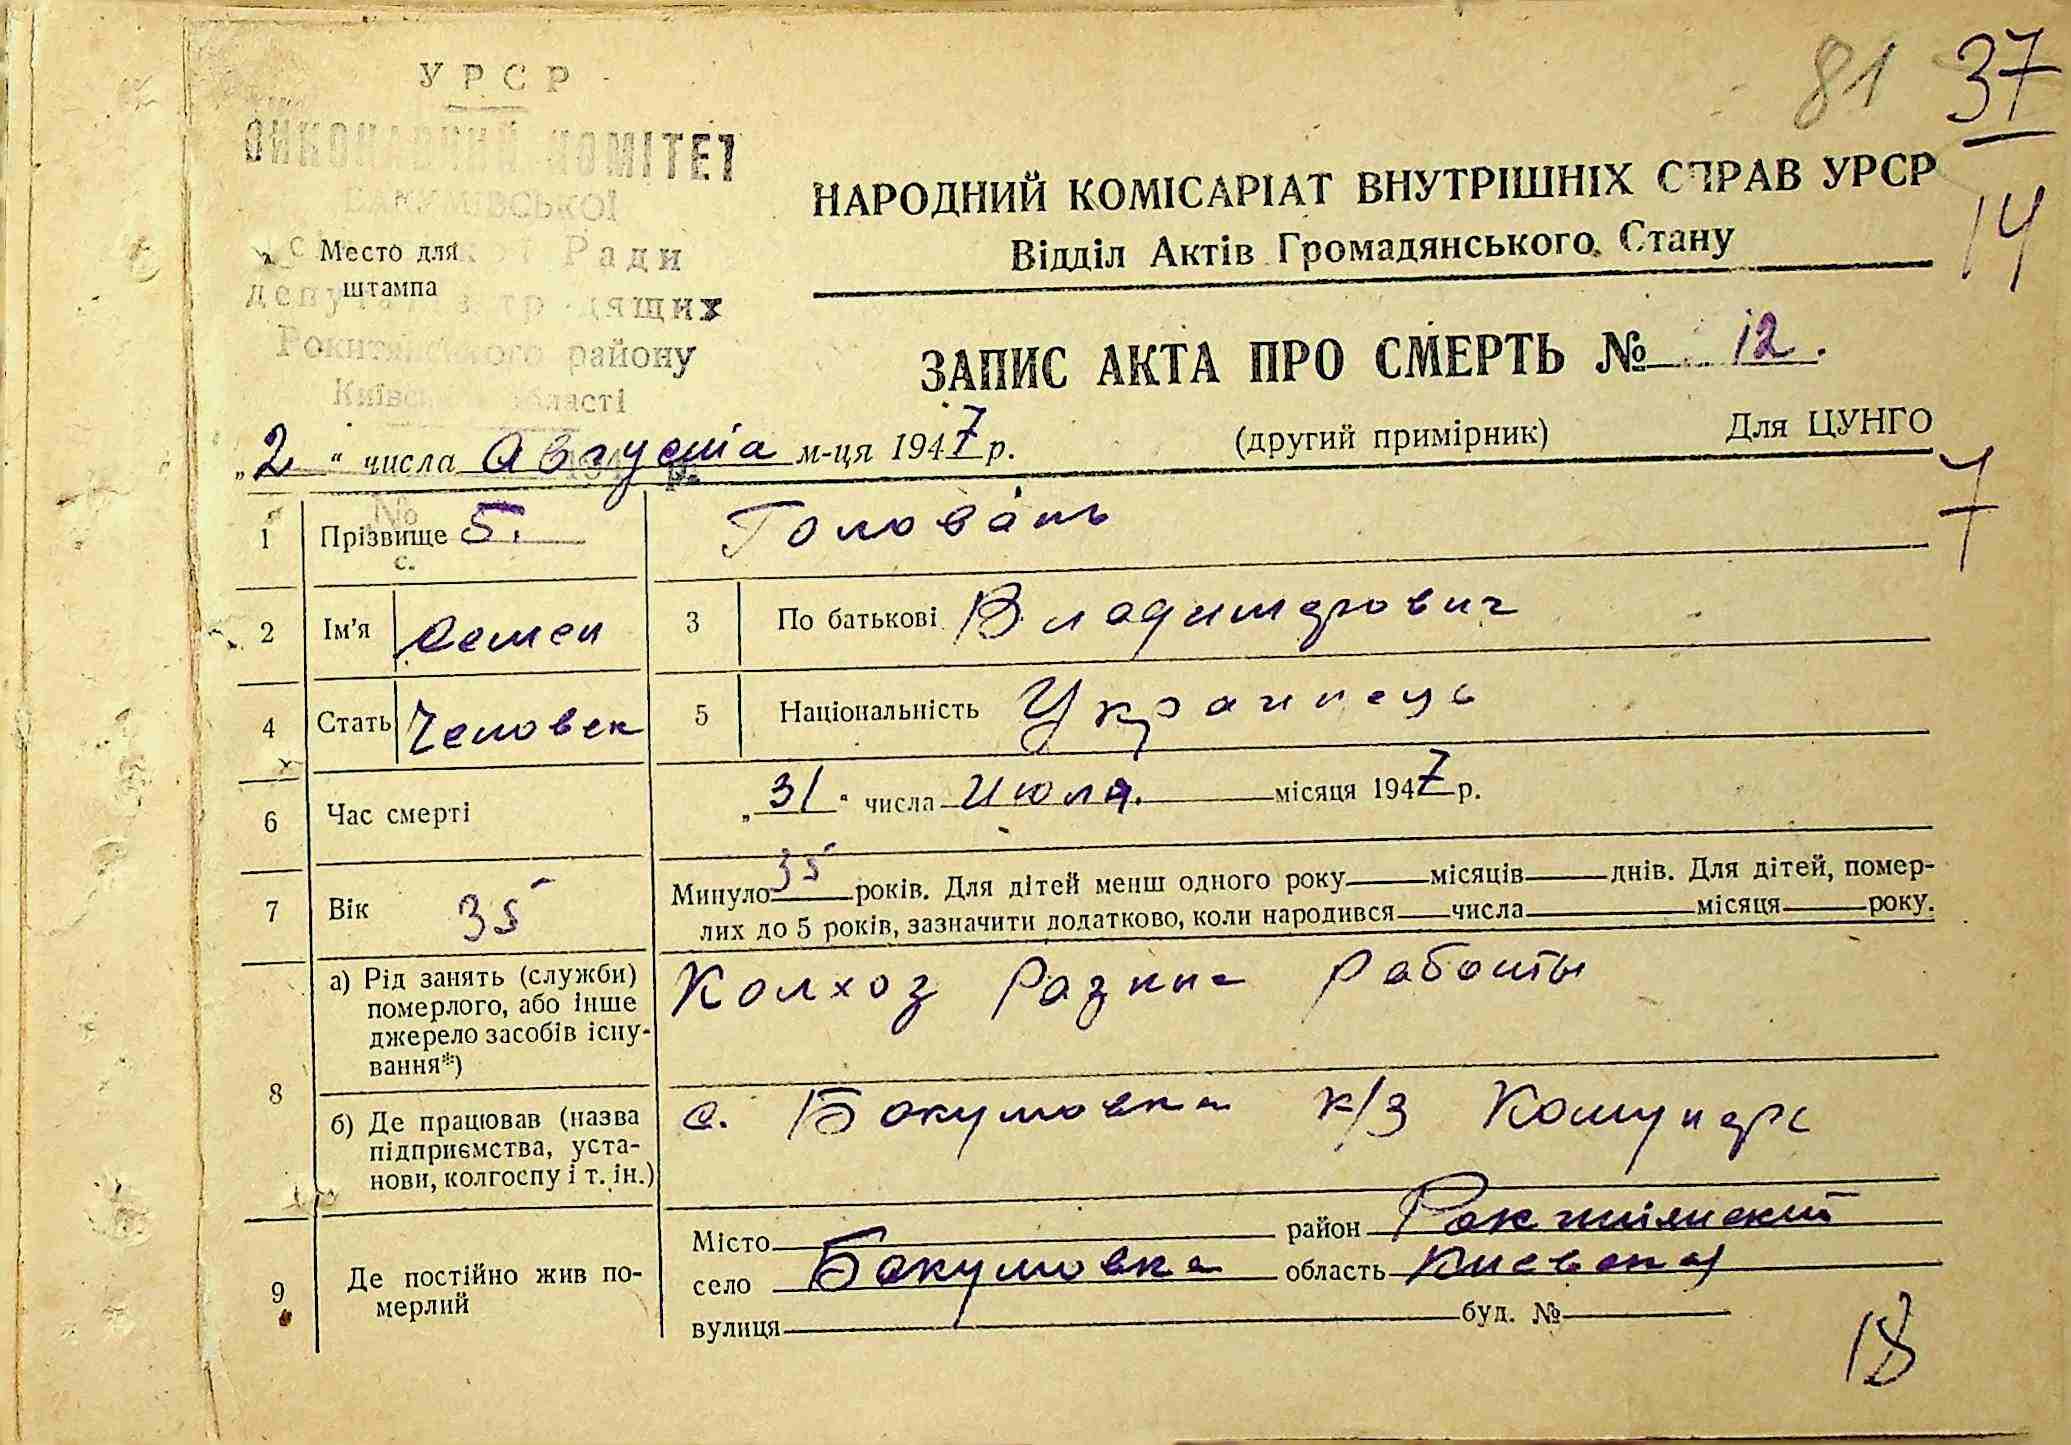 81 37
14
УРСР
ВИКОНАВЧИЙ КОМІТЕТ
БАКУМІВСЬКОЇ
Ради
Место для
штампа
депутатів трудящих
Рокитянського району
Київської області
НАРОДНИЙ КОМІСАРІАТ ВНУТРІШНІХ СПРАВ УРСР
Відділ Актів Громадянського Стану
ЗАПИС АКТА ПРО СМЕРТЬ № 12.
„2“ числа Августа м-ця 1947 р. (другий примірник) Для ЦУНГО
7
№
1 Прізвище 5. Головань
с.
2 Ім'я Семен 3 По батькові Владимерович
4 Стать Человек 5 Національність Украинець
6 Час смерті „31“ числа Июля. місяця 1947 р.
7 Вік 35 Минуло 35 років. Для дітей менш одного року місяців днів. Для дітей, помер-
лих до 5 років, зазначити додатково, коли народився числа місяця року.
8 а) Рід занять (служби) Колхоз Разние Работы
померлого, або інше
джерело засобів існу-
вання*)
б) Де працював (назва с. Бакумовка к/з Комунар
підприємства, уста-
нови, колгоспу і т. ін.)
9 Де постійно жив по-
мерлий
Місто район Ракитянский
село Бакумовка область Киевская
вулиця буд. №
18